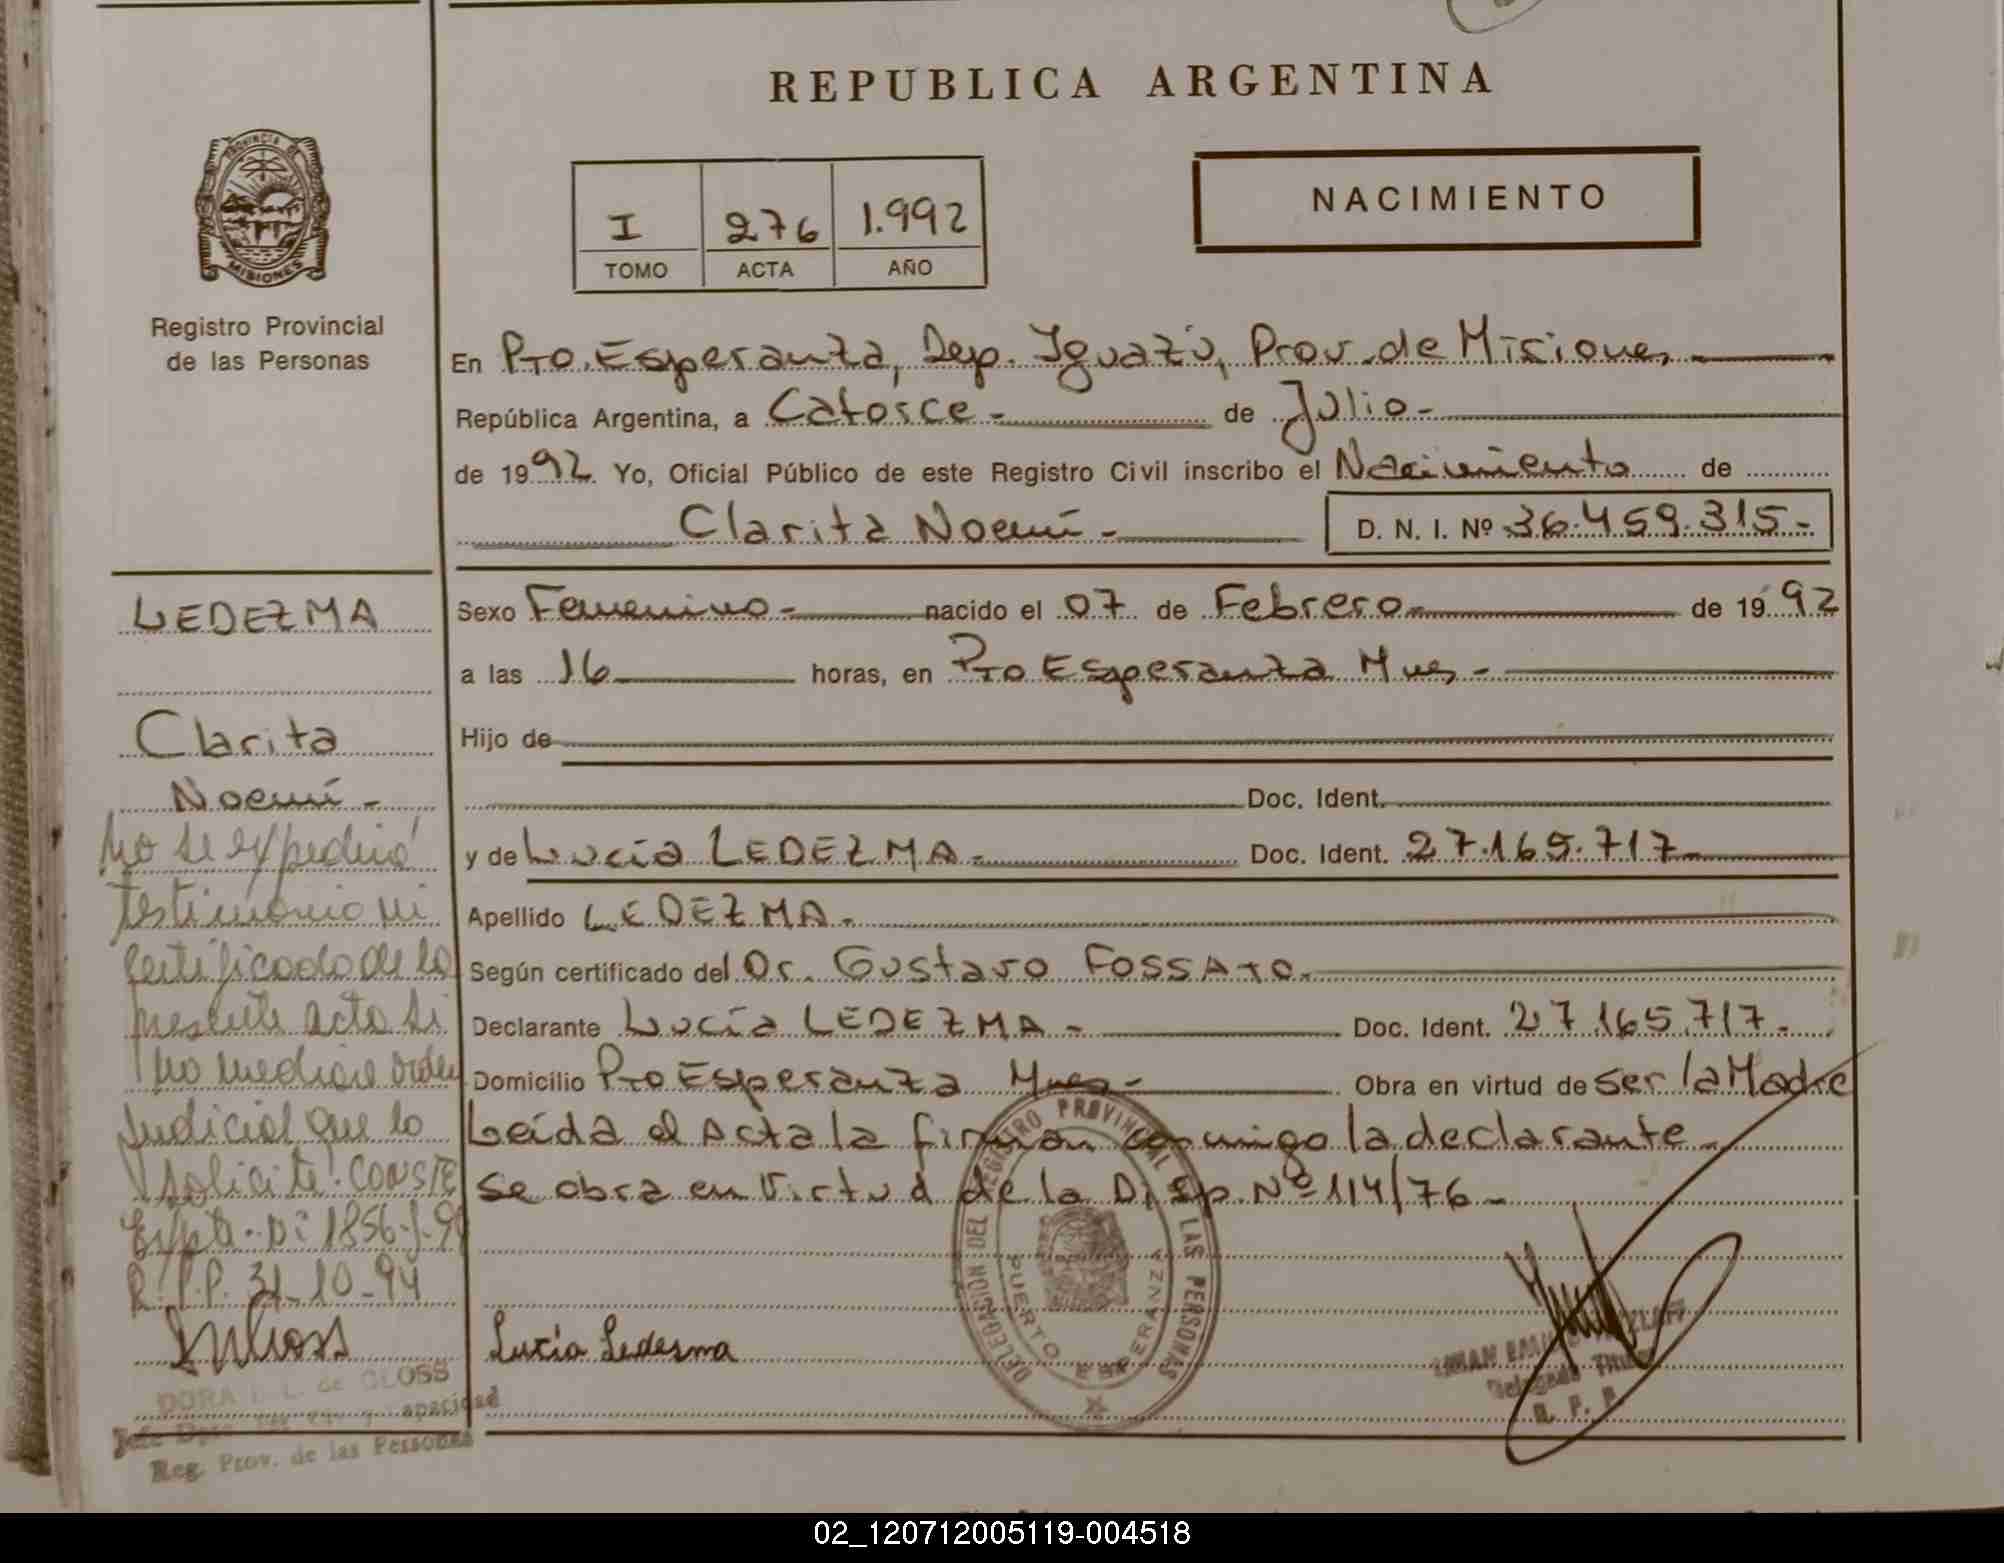 REPUBLICA ARGENTINA
PROVINCIA DE
MISIONES
Registro Provincial
de las Personas
I 276 1.992
TOMO ACTA AÑO
NACIMIENTO
En Pto. Esperanza, Dep. Iguazú, Prov. de Misiones
República Argentina, a Catorce - de Julio -
de 1992 Yo, Oficial Público de este Registro Civil inscribo el Nacimiento de
Clarita Noemí - D. N. I. Nº 36.459.315 -
Sexo Femenino - nacido el 07 de Febrero - de 1992
a las 16 horas, en Pto Esperanza Mnes -
Hijo de
Doc. Ident.
y de Lucía LEDEZMA - Doc. Ident. 27.165.717 -
Apellido LEDEZMA -
Según certificado del Dr. Gustavo FOSSATO.
Declarante Lucía LEDEZMA - Doc. Ident. 27.165.717 -
Domicilio Pto Esperanza Mnes - Obra en virtud de Ser la Madre
Leída el Acta la firman conmigo la declarante -
Se obra en Virtud de la Disp. Nº 114/76 -
Lucía Ledesma
DELEGACION DEL REGISTRO PROVINCIAL DE LAS PERSONAS
PUERTO ESPERANZA
Delegado
R. P. P.
LEDEZMA
Clarita
Noemí -
No se expedirá
testimonio ni
certificado de la
presente acta si
no mediare orden
Judicial que lo
solicite. CONSTE
Expte. 1856
R.P.P. 31-10-94
DORA L. de GLOSS
Jefe Dpto. Capacidad
Reg. Prov. de las Personas
02_120712005119-004518